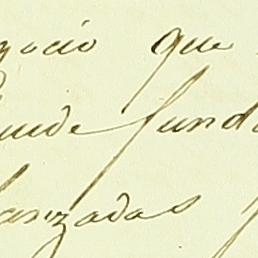 gocio que
uede fund
anzadas